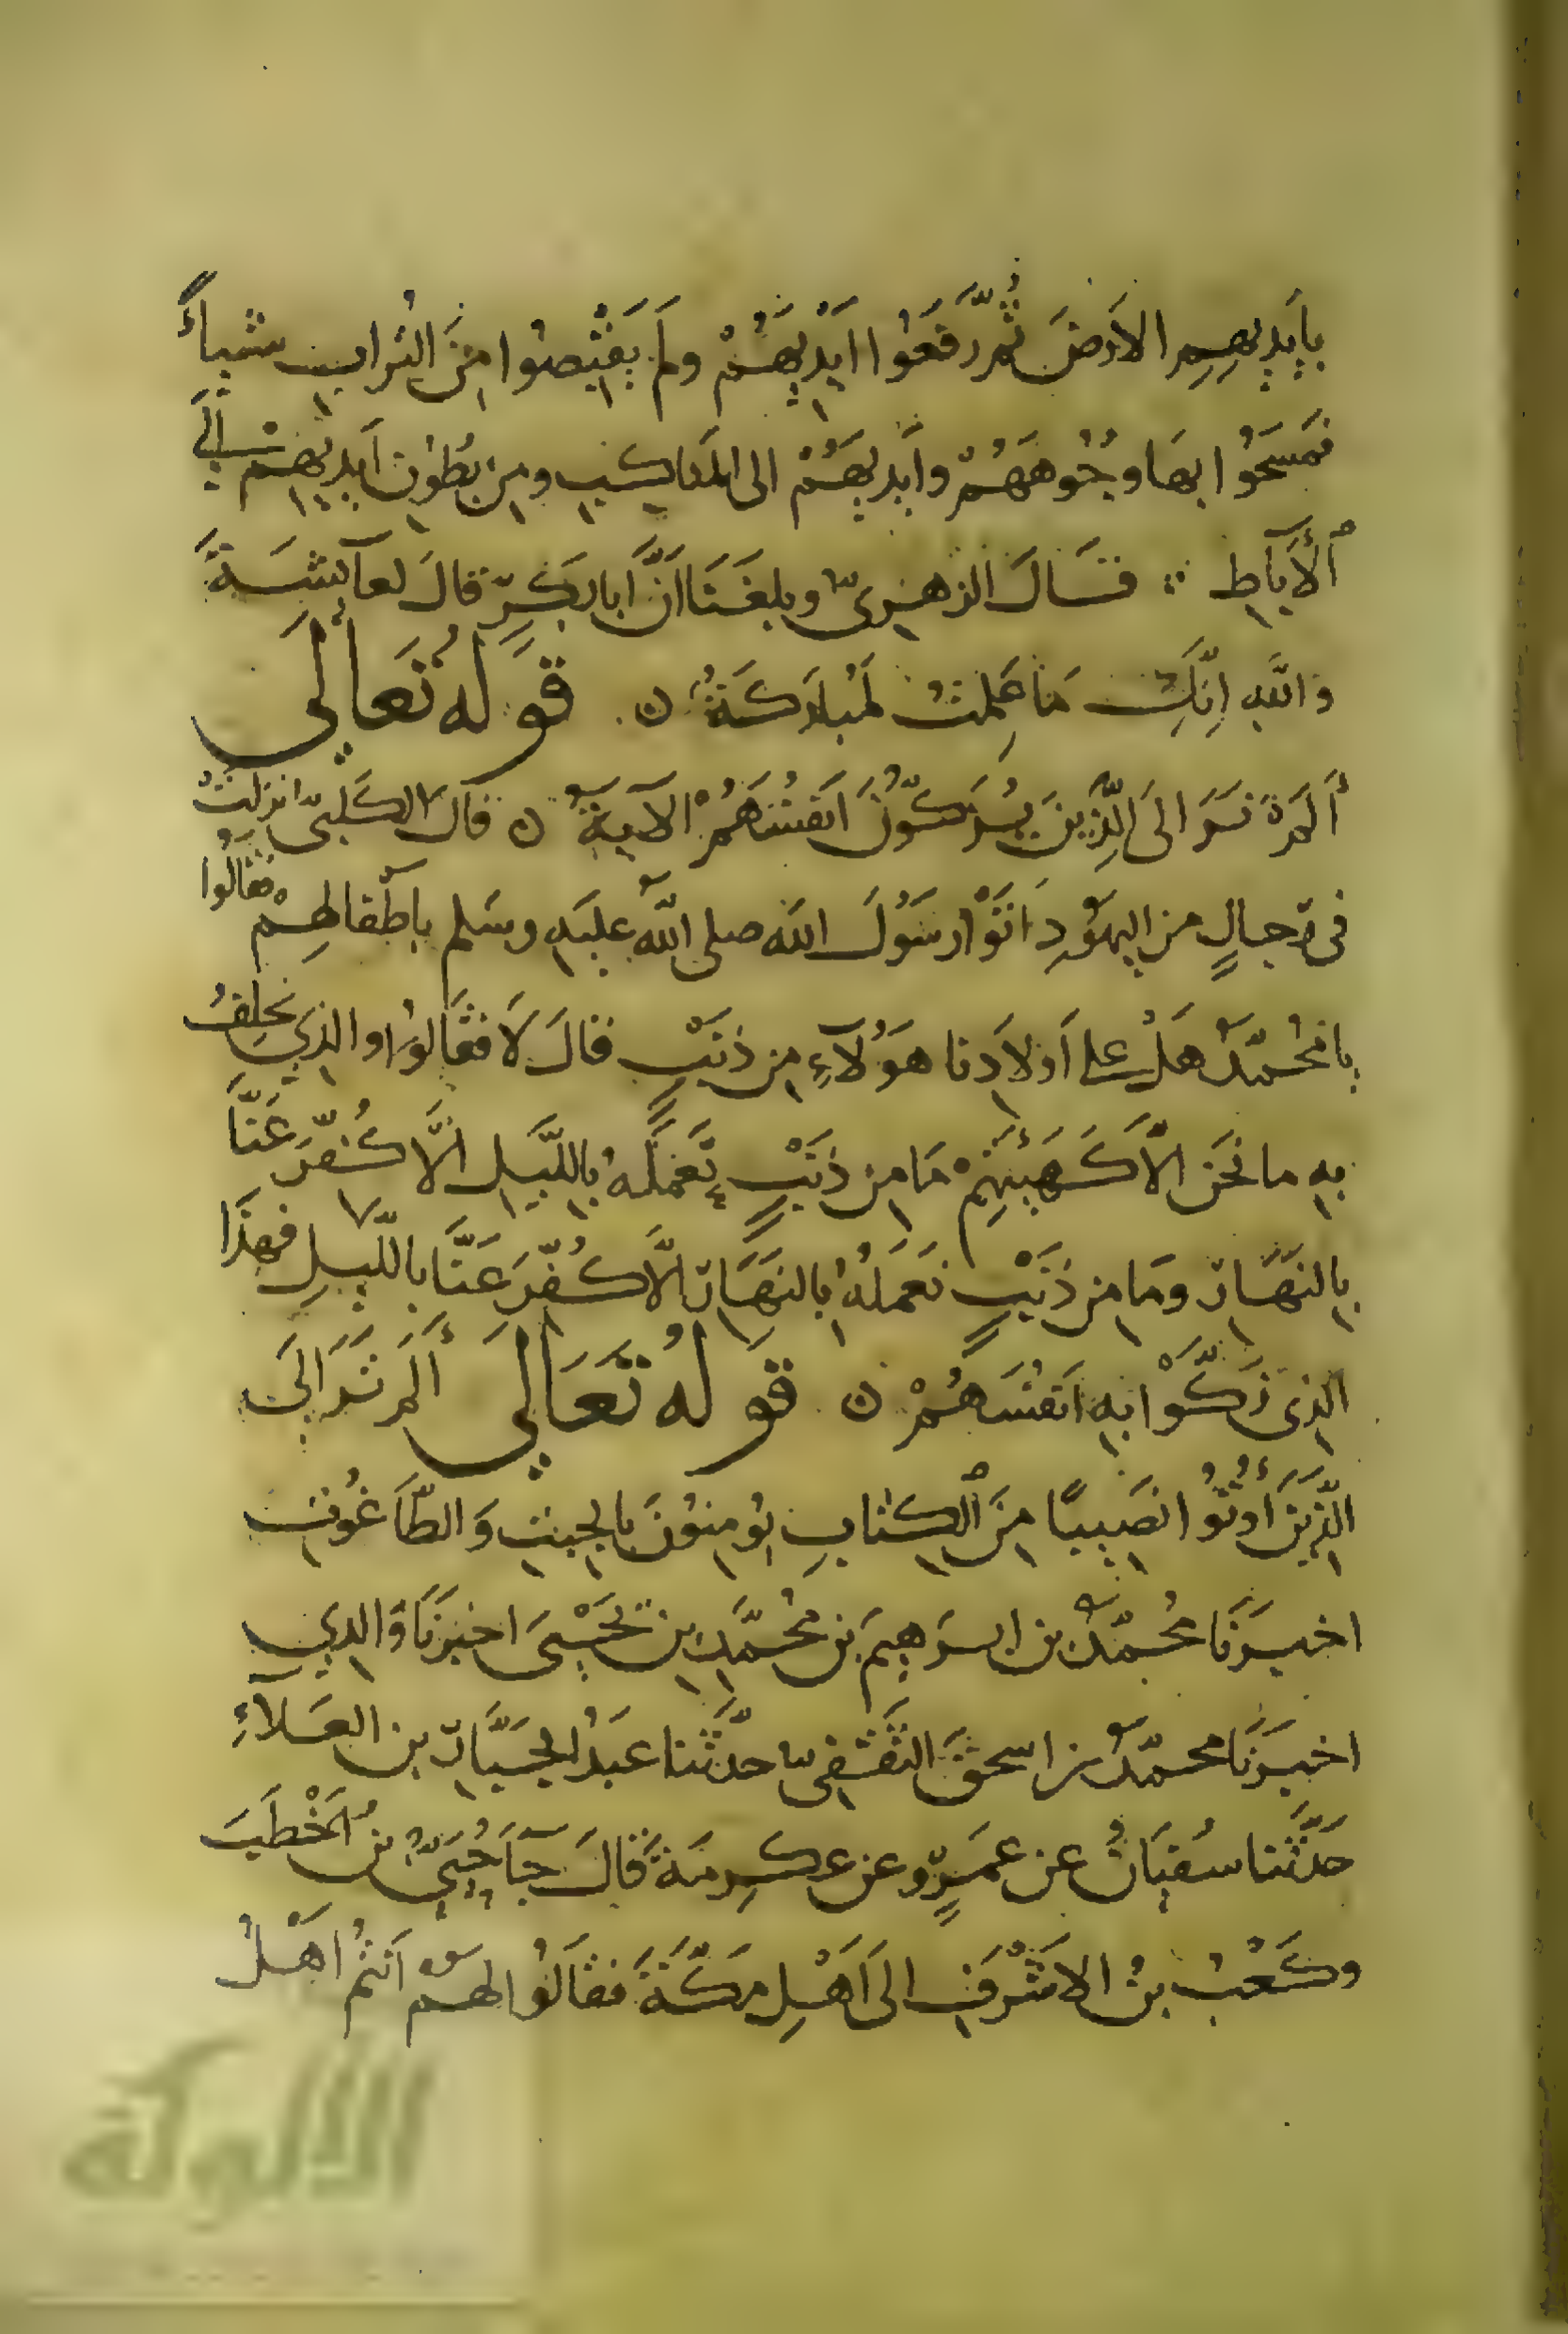 بِأَيْدِيهِمِ الاَرْضَ ثُمَّ رَفَعُوا اَيْدِيَهُمْ وَلَمْ يَقْبِضُوا مِنَ التُرابِ شَيـاءً
فَمَسَحُوا بِهَا وجُوهَهُمْ وَاَيْدِيَهُمْ الى المَنَاكِبِ ومِنْ بُطُونِ اَيْدِيهِمْ اِلَى
اْلأَبَاطِ ∴ قَالَ الزهرِىّ وبلغَنَا اَنَّ اَبَابَكرٍ قالَ لعآئِشَـةَ
وَاللّهِ اِنَّكِ مَا عَلِمْتُ لَمُبَارَكَةٌ ن قَوْلُهُ تَعَالَى
أَلَمْ تَرَ اِلَى الَّذِينَ يُزَكُّونَ اَنْفُسَهُمْ الآيَةَ ن قالَ الكَلْبىّ انزلتْ
فى رِجالٍ من اليهُودِ اَتَوْا رسُولَ الله صلى اللّه عليَهِ وسَلم باَطْفالهِمْ فقَالُوا
يا مُحُمّدُ هَلْ على اَوْلاَدِنا هَؤُلآءِ مِن ذَنْبٍ قالَ لَا فقَالُوا والذِى نحْلِفُ
بهِ ما نحْنُ الاَّ كَهَيْئَتِهِمْ مَا مِن ذَنْبٍ نَعْمَلُهُ بِاللَّيلِ الَّا كُفِّرَ عَنَّا
بِالنَهَارِ وَمَا مِن ذَنْبٍ نَعمَلُهُ بِالنهَارِ الَّا كُفِّرَ عَنَّا باللّيلِ فهذَا
الذِى زَكَّوْا بِهِ اَنفُسَهُمْ ن قَوْلُهُ تَعَالَى أَلَمْ تَرَ الَى
الَّذِينَ أُوتُوا نَصِيبًا مِنَ اْلكتٰابِ يُومِنُونَ بِالجِبتِ وَالطَّاغُوتِ
اخبـرَنَا مُحُمّدُ بن ابرَهِيمَ بن مُحُمَّدِ بن يَحْيىَ اخبرَنَا وَالدِى
اخبـرَنَا محمّدُ بن اسحقَ الثَقَفِىّ حدَّثنا عَبْدُ الجَبَّارِ بن العَلاَءِ
حَدَّثنا سُفيَانُ عن عَمرٍو عن عِكرِمَةَ قالَ جآءَ حُيَىُّ بنُ اَخْطَبَ
وكَعْبُ بنُ الاَشْرَفِ الى اَهْلِ مَكَّةَ فقَالُوا لهُمْ اَنتُمْ اهْلُ
الألوكة